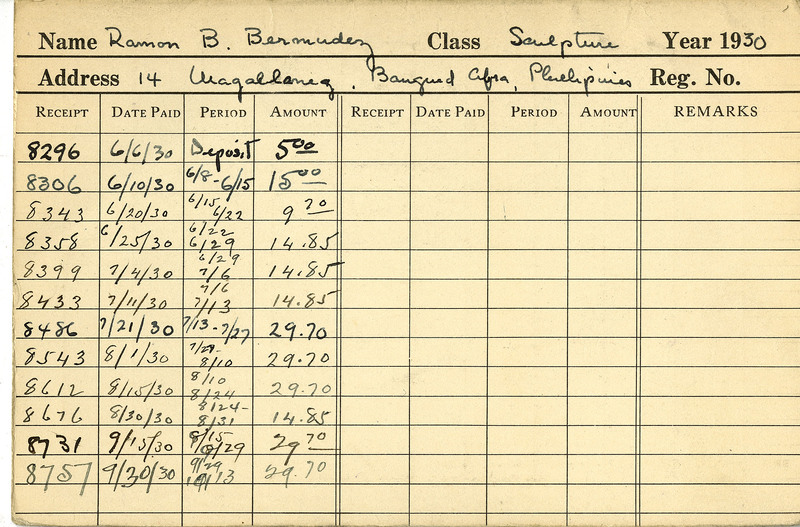 Name Ramon B. Bermudez Class Sculpture Year 1930
Address 14 Magallanes, Bangued Abra, Phillipines Reg. No.
RECEIPT DATE PAID PERIOD AMOUNT RECEIPT DATE PAID PERIOD AMOUNT REMARKS
8296 6/6/30 Deposit 5.00
8306 6/10/30 6/8-6/15 15.00
8343 6/20/30 6/15 6/22 9.70
8358 6/25/30 6/22 6/29 14.85
8399 7/4/30 6/29 7/6 14.85
8433 7/11/30 7/6 7/13 14.85
8486 7/21/30 7/13-7/27 29.70
8543 8/1/30 8/10 29.70
8612 8/15/30 8/10 8/24 29.70
8676 8/30/30 8/24- 8/31 14.85
8731 9/15/30 29.70
8757 9/30/30 9/29 10/13 29.70